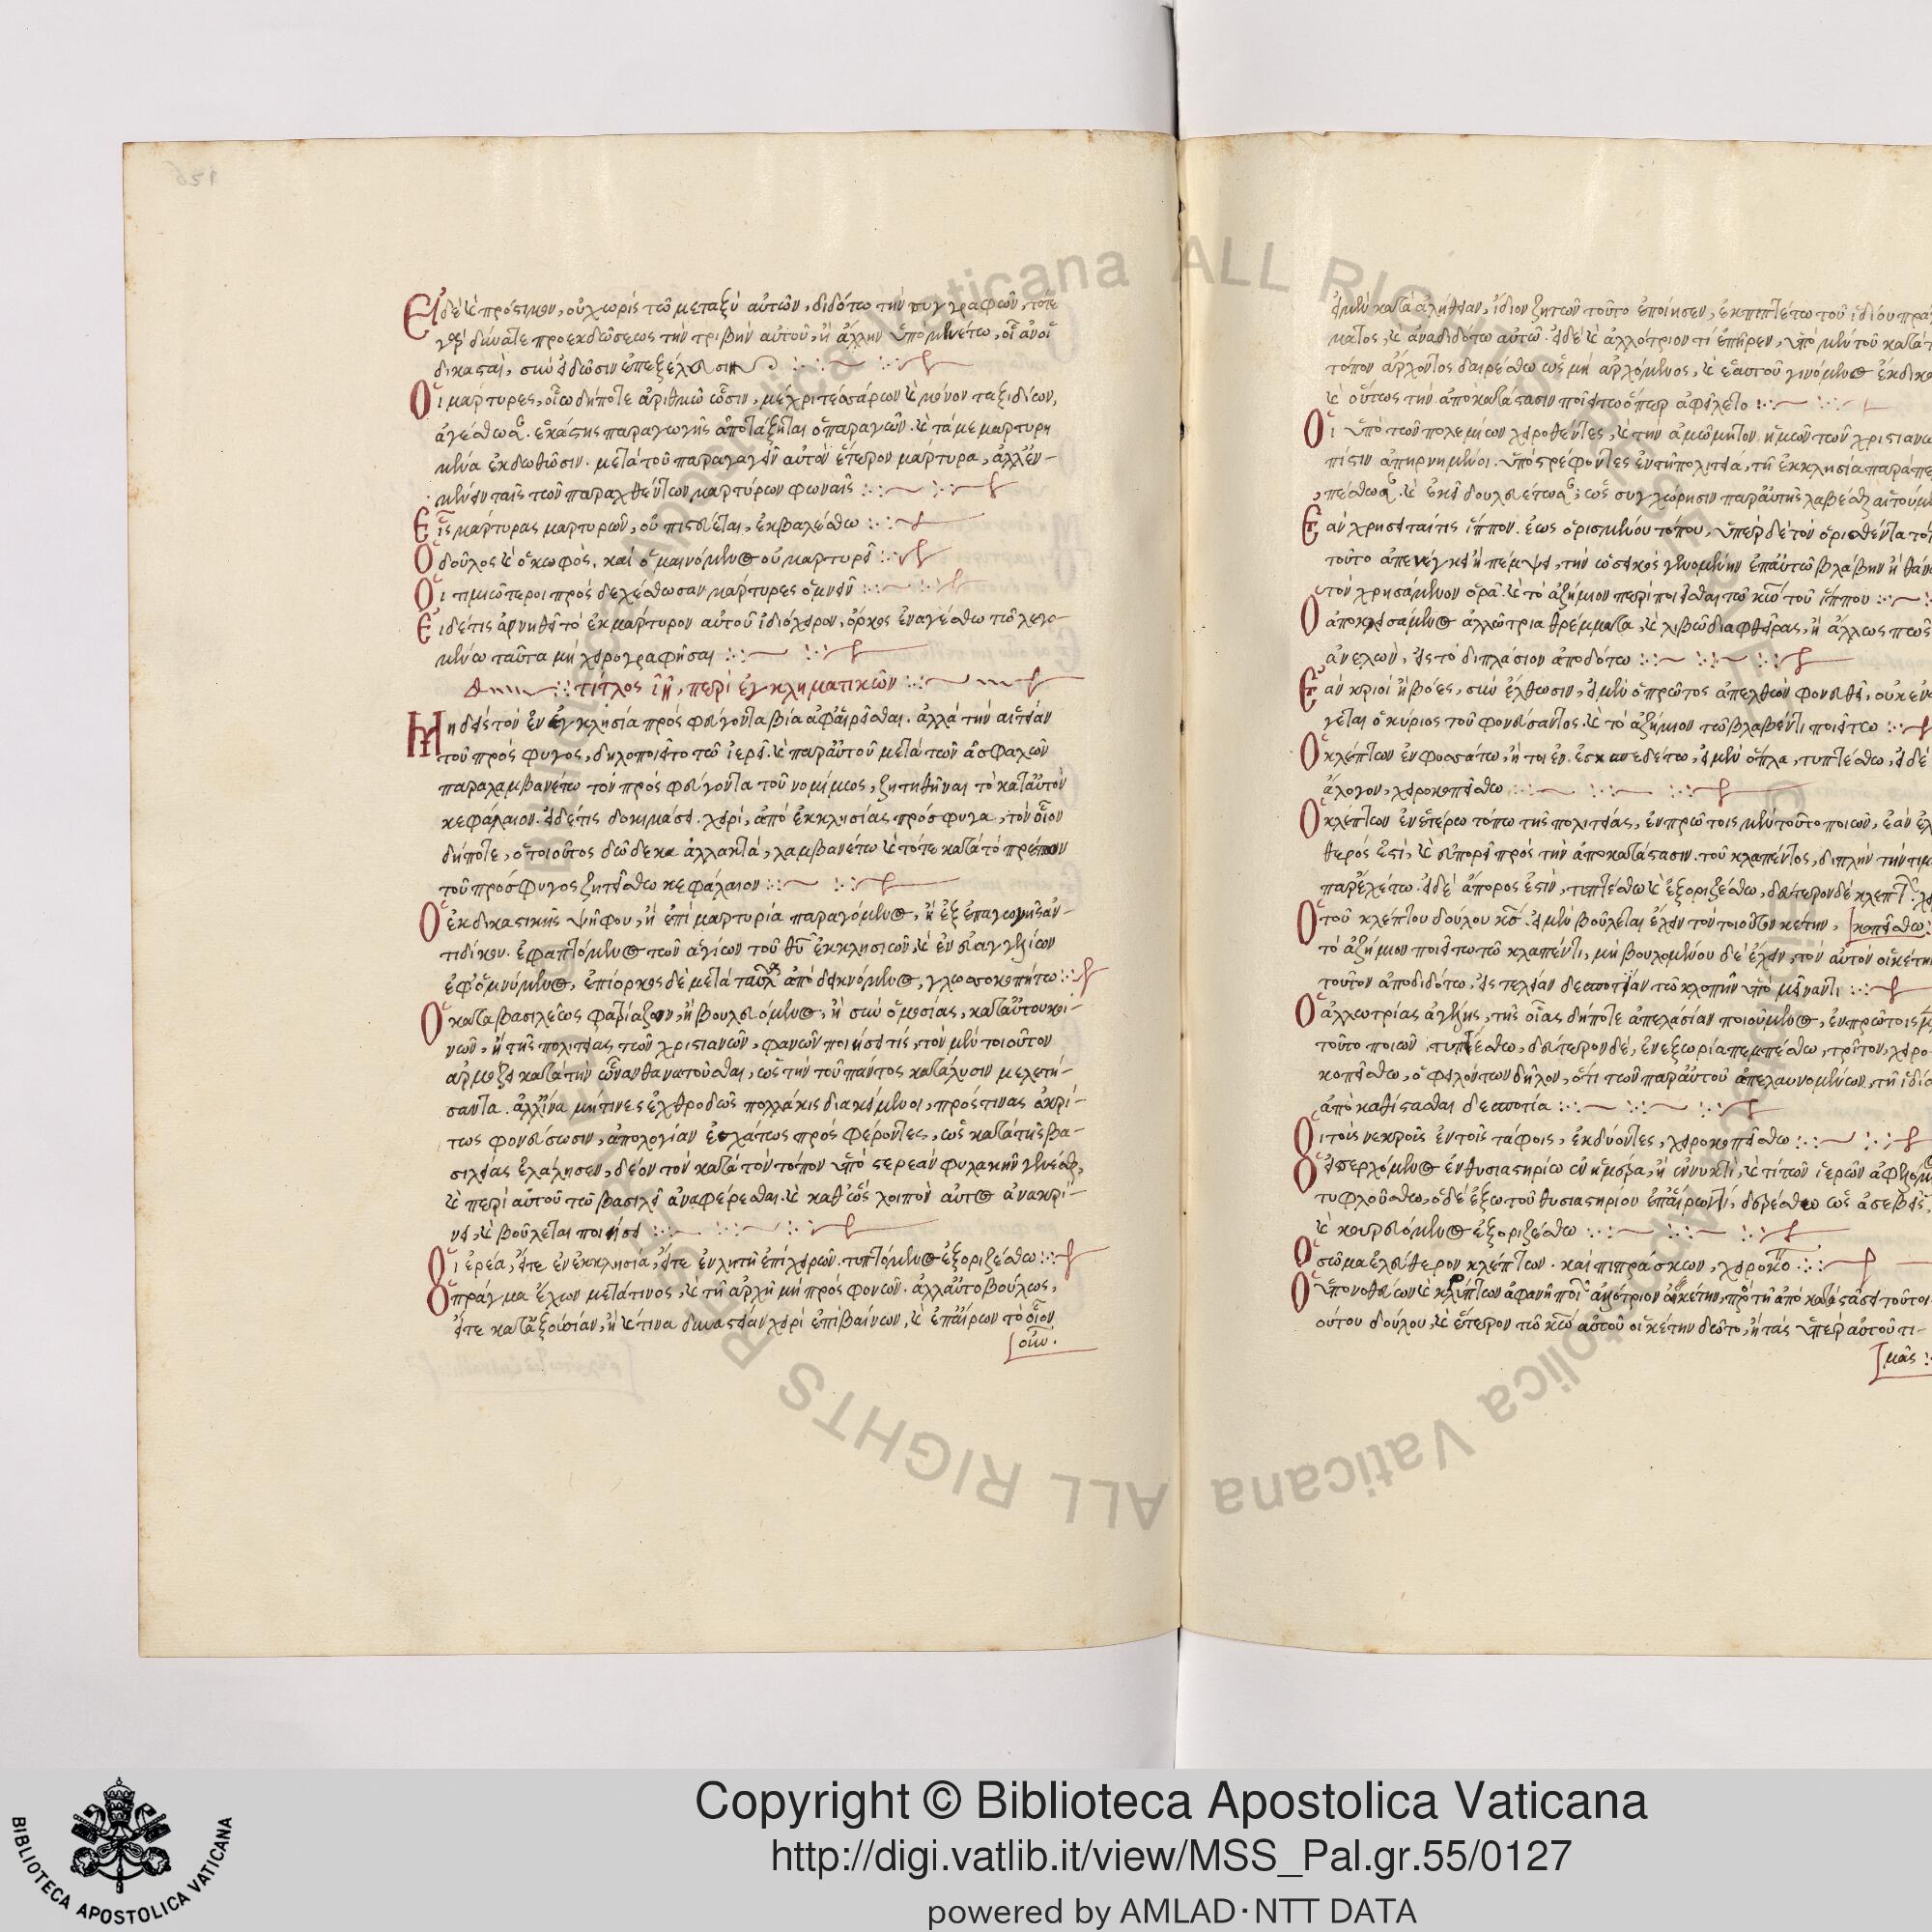 Εἰ δὲ καὶ πρόστιμον, οὐ χωρὶς τῶ μεταξὺ αὐτῶν, διδότω τὴν συγγραφῶν, τότε
δύναται προεκδώσεως τὴν τριβὴν αὐτοῦ, ἢ ἄλλην ὑπομενέτω, οἵαν οἱ
δικασταὶ
Οἱ μάρτυρες, οἵω δήποτε ἀριθμῶ ὦσιν, μέχρι τεσσάρων καὶ μόνον ταξιδίων,
μενα ἐκδωθῶσιν. μετὰ τοῦ παραγαγεῖν αὐτὸν ἕτερον μάρτυρα, ἀλλ' ἐν
ταῖς τῶν παραχθέντων μαρτύρων φωναῖς
Εἷς μάρτυρας μαρτυρῶν, οὐ πιστεύεται, ἐκβαλέσθω
Ὁ δοῦλος καὶ ὁ κωφὸς, καὶ ὁ μαινόμενος οὐ μαρτυρεῖ
Οἱ τιμιώτεροι προσδεχέσθωσαν μάρτυρες ὀμνεῖν
Εἰ δέ τις ἀρνηθεῖ τὸ ἐκ μαρτύρων αὐτοῦ ἰδιόχειρον, ὅρκος ἐναγέσθω τῶ λεγο-
μένω ταῦτα μὴ χειρογραφῆσαι
τίτλος ιη, περὶ ἐγκληματικῶν
Μηδεὶς τὸν ἐν ἐγκλησία προσφεύγοντα βία ἀφαιρεῖσθαι. ἀλλὰ τὴν αἰτείαν
τοῦ πρόσφυγος, δηλοποιεῖτο τῶ ἱερεῖ. καὶ παρ' αὐτοῦ μετὰ τῶν ἀσφαλῶν
παραλαμβανέτω τὸν προσφεύγοντα τοῦ νομίμως, ζητηθῆναι τὸ κατ' αὐτὸν
κεφάλαιον. εἰ δέ τις δοκιμάσει. χειρὶ, ἀπὸ ἐκκλησίας πρόσφυγα, τὸν οἷον
δήποτε, ὁ τοιοῦτος δώδεκα ἀλλακτὰ, λαμβανέτω καὶ τότε κατὰ τὸ πρέπον
τοῦ πρόσφυγος ζητείσθω κεφάλαιον
Ὁ ἐκ δικαστικῆς ψήφου, ἢ ἐπὶ μαρτυρία παραγόμενος, ἢ ἐξ ἐπαγωγῆς ἀν-
τιδίκου. ἐφαπτόμενος τῶν ἁγίων τοῦ θυ ἐκκλησιῶν, καὶ ἐν εὐαγγελίων
ἐφ' ὀμνύμενος, ἐπίορκος δὲ μετὰ ταῦτα ἀποδεικνύμενος, γλωσσοκοπήτω
Ὁ κατὰ βασιλέως φατριάζων, ἢ βουλευόμενος, ἢ συνομοσίας, κατ' αὐτοῦ κοι-
νῶν, ἢ τῆς πολιτείας τῶν χριστιανῶν, φανῶν ποιήσει τίς, τὸν μὲν τοιοῦτον
ἁρμόζει κατὰ τὴν ὥραν θανατοῦσθαι, ὡς τὴν τοῦ παντὸς κατάλυσιν μελετή-
σαντα. ἀλλ' ἵνα μή τινες ἐχθροδῶς πολλάκις διακείμενοι, πρός τινας ἀκρί-
τως φονεύσωσιν, ἀπολογίαν ἐσχάτως προσφέροντες, ὡς κατὰ τῆς βα-
σιλείας ἐλάλησεν, δέον τὸν κατὰ τὸν τόπον ὑπὸ στερεὰν φυλακὴν γενέσθαι,
καὶ περὶ αὐτοῦ τῶ βασιλεῖ ἀναφέρεσθαι. καὶ καθὼς λοιπὸν αὐτὸς ἀνακρί-
νει, καὶ βούλεται ποιήσει
Ὁ ἱερέα, εἴτε ἐν ἐκκλησία, εἴτε ἐν λητῆ ἐπιχειρῶν. τυπτόμενος ἐξοριζέσθω
Ὁ πρᾶγμα ἔχων μετά τινος, καὶ τῆ ἀρχῆ μὴ προσφωνῶν. ἀλλ' αὐτοβούλως,
εἴτε κατ' ἐξουσίαν, ἢ καί τινα δυναστείαν χειρὶ ἐπιβαίνων, καὶ ἐπαίρων τὸ οἷον
εἰ μὲν κατὰ ἀλήθειαν, ἴδιον ζητῶν τοῦτο ἐποίησεν, ἐκπιπτέτω τοῦ ἰδίου πρά
ματος, καὶ ἀναδιδότω αὐτῶ. εἰ δὲ καὶ ἀλλότριόν τι ἐπῆρεν, ὑπὸ μὲν τοῦ κατὰ τ
τόπον ἄρχοντος δαιρέσθω ὡς μὴ ἀρχόμενος, καὶ ἑαυτοῦ γινόμενος ἔκδικο
καὶ οὕτως τὴν ἀποκατάστασιν ποιείτω ὅπερ ἀφείλετο
Οἱ ὑπὸ τῶν πολεμίων χειρωθέντες, καὶ τὴν ἀμώμητον ἡμῶν τῶν χριστιανῶ
πίστιν ἀπηρνημένοι. ὑποστρέφοντες ἐν τῆ πολιτεία, τῆ ἐκκλησία παραπε
Ἐὰν χρήσεταί τις ἵππον. ἕως ὁρισμένου τόπου, ὑπὲρ δὲ τὸν ὁρισθέντα τό
τοῦτο ἀπενέγκει ἢ πέμψει, τὴν ὡσεικὸς γενομένην ἐπ' αὐτῶ βλάβην ἢ θάνα
τὸν χρησάμενον ὁρᾶ. καὶ τὸ ἀζήμιον περιποιεῖσθαι τῶ κῶ τοῦ ἵππου
Ὁ ἀποκλεισάμενος ἀλλώτρια θρέμματα, καὶ λιβῶ διαφθείρας, ἢ ἄλλως πως
ἀνελὼν, εἰς τὸ διπλάσιον ἀποδότω
Ἐὰν κριοὶ ἢ βόες, συνέλθωσιν, εἰ μὲν ὁ πρῶτος ἀπελθὼν φονευθεῖ, οὐκ ἐνά
γεται ὁ κύριος τοῦ φονεύσαντος. καὶ τὸ ἀζήμιον τῶ βλαβέντι ποιείτω
Ὁ κλέπτων ἐν φοσσάτω, ἤτοι ἐν ἐσκανεδέτω, εἰ μὲν ὅπλα, τυπτέσθω, εἰ δὲ
ἄλογον, χειροκοπείσθω
Ὁ κλέπτων ἐν ἑτέρω τόπω τῆς πολιτείας, ἐν πρώτοις μὲν τοῦτο ποιῶν, ἐὰν ἐλ
θερός ἐστι, καὶ εὐπορεῖ πρὸς τὴν ἀποκατάστασιν. τοῦ κλαπέντος, διπλὴν τὴν τιμ
παρεχέτω. εἰ δὲ ἄπορος ἐστὶν, τυπτέσθω καὶ ἐξοριζέσθω, δεύτερον δὲ κλέπτ
Ὁ τοῦ κλέπτου δούλου κς. εἰ μὲν βούλεται ἔχειν τὸν τοιοῦτον ἱκέτην, κοπείσθω:
τὸ ἀζήμιον ποιείτω τῶ κλαπέντι, μὴ βουλομένου δὲ ἔχειν, τὸν αὐτὸν οἰκέτη
τοῦτον ἀποδιδότω, εἰς τελείαν δεσποτείαν τῶ κλοπὴν ὑπομείναντι
Ὁ ἀλλωτρίας ἀγέλης, τῆς οἵας δήποτε ἀπελασίαν ποιούμενος, ἐν πρώτοις
τοῦτο ποιῶν, τυπτέσθω, δεύτερον δὲ, ἐν ἐξωρία πεμπέσθω, τρίτον, χειρο-
κοπείσθω, ὀφειλόντων δῆλον, ὅτι τῶν παρ' αὐτοῦ ἀπελαυνομένων, τῆ ἰδία
ἀποκαθίστασθαι δεσποτία
Οἱ τοὺς νεκροὺς ἐν τοῖς τάφοις, ἐκδύοντες, χειροκοπείσθω
Ὁ εἰσερχόμενος ἐν θυσιαστηρίω ἐν ἡμέρα, ἢ ἐν νυκτὶ, καὶ τί τῶν ἱερῶν
τυφλούσθω, ὁ δὲ ἔξω τοῦ θυσιαστηρίου ἐπαίρων τί, δερέσθω ὡς ἀσεβεῖς,
καὶ κουρευόμενος ἐξοριζέσθω
Ὁ σῶμα ἐλεύθερον κλέπτων. καὶ πιπράσκων, χειροκο
Ὁ ὑπονοθεύων καὶ κλέπτων ἀφανῆ ἀλλότριον οἰκέτην
αὐτοῦ δούλου, καὶ ἕτερον τῶ κῶ αὐτοῦ οἰκέτην δώτο, ἢ τὰς ὑπὲρ αὐτοῦ τι-
μὰς :
Copyright © Biblioteca Apostolica Vaticana
http://digi.vatlib.it/view/MSS_Pal.gr.55/0127
powered by AMLAD·NTT DATA
BIBLIOTECA APOSTOLICA VATICANA